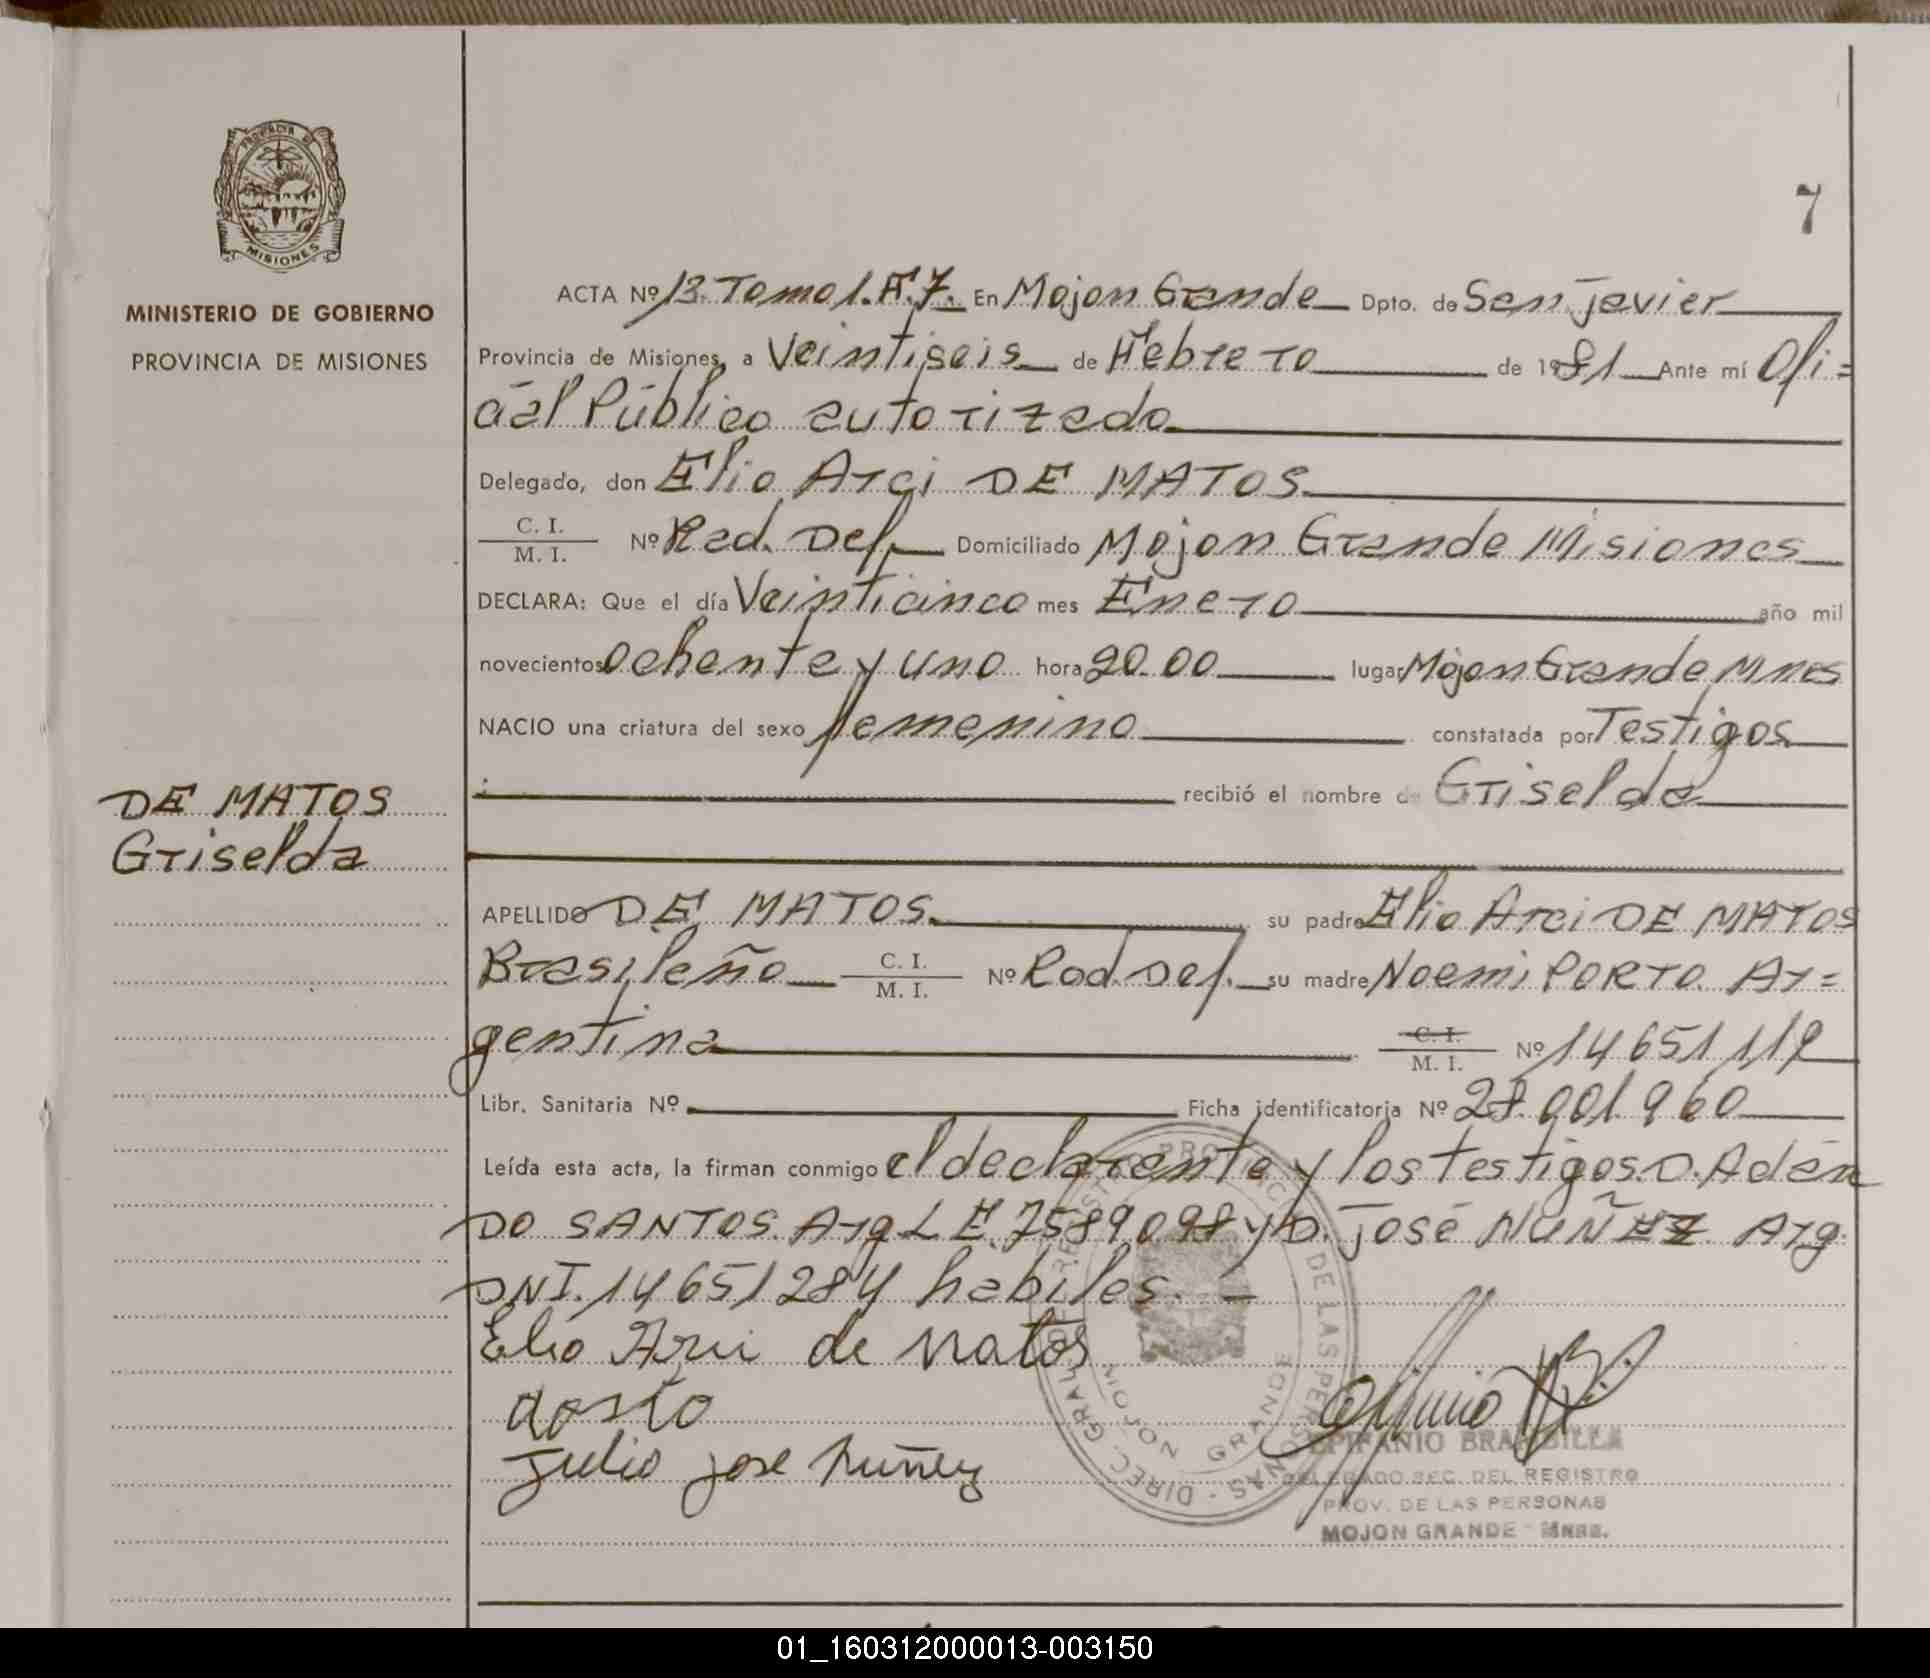 PROVINCIA DE
MISIONES
MINISTERIO DE GOBIERNO
PROVINCIA DE MISIONES
7
ACTA Nº 13. Tomo 1. F. 7. En Mojon Grande Dpto. de San Javier
Provincia de Misiones, a Veintiseis de Febrero de 1981 Ante mí Ofi=
cial Público autorizado
Delegado, don Elio Arci DE MATOS.
C. I. / M. I. Nº Rad. Def. Domiciliado Mojon Grande Misiones
DECLARA: Que el día Veinticinco mes Enero año mil
novecientos Ochenta y uno hora 20.00 lugar Mojon Grande Mnes
NACIO una criatura del sexo femenino constatada por Testigos
recibió el nombre de Griselda
DE MATOS
Griselda
APELLIDO DE MATOS. su padre Elio Arci DE MATOS
Brasileño C. I. / M. I. Nº Rad. Def. su madre Noemi PORTO. Ar=
gentina C. I. / M. I. Nº 14651119
Libr. Sanitaria Nº Ficha identificatoria Nº 28.001.960
Leída esta acta, la firman conmigo el declarante y los testigos. D.
DO SANTOS. Arg L E. 7589.098 y D. José NUÑEZ Arg.
DNI. 14651284 habiles. -
Elio Arci de Matos
julio jose nuñez
DIREC. GRAL. DE REGISTRO PROVINCIAL DE LAS PERSONAS
MOJON GRANDE
EPIFANIO BRAMBILLA
DELEGADO SEC. DEL REGISTRO
PROV. DE LAS PERSONAS
MOJON GRANDE - Mnes.
01_160312000013-003150